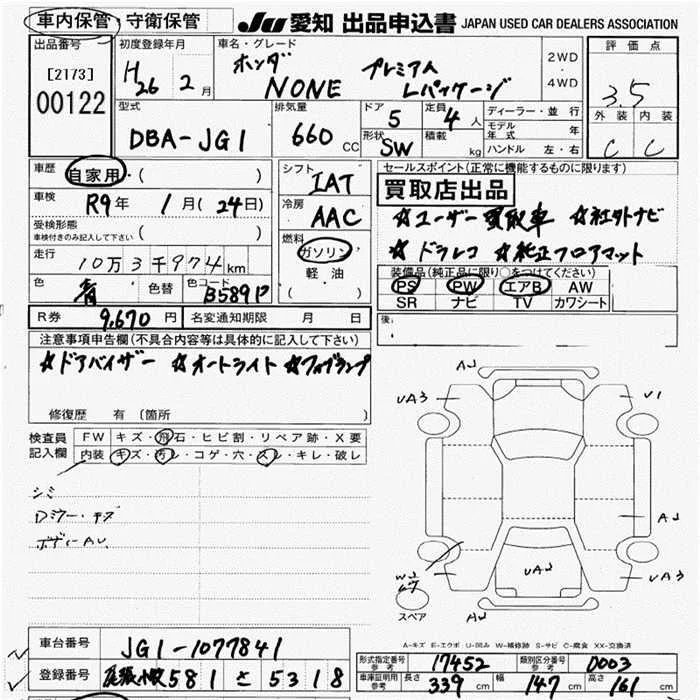 車内保管・守衛保管 JU 愛知 出品申込書 JAPAN USED CAR DEALERS ASSOCIATION
出品番号 初度登録年月 車名・グレード 評価点
[2173] H26 2月 ホンダ プレミアム 2WD・4WD 3.5
00122 NONE Lパッケージ
外装 内装
C C
型式 排気量 ドア 定員 ディーラー・並行
DBA-JG1 660 CC 5 4人 モデル年式 年
形状 積載 ハンドル 左・右
SW kg
車歴 自家用・( ) シフト IAT セールスポイント(正常に機能するものに限ります)
車検 R9年 1月(24日) 冷房 AAC 買取店出品
受検形態 ( ) ☆ユーザー買取車 ☆社外ナビ
車検付きのみ記入して下さい
☆ドラレコ ☆純正フロアマット
走行 10万3千974km 燃料 ガソリン 軽油 ( )
装備品(純正品に限り○をつけてください)
PS PW エアB AW
SR ナビ TV カワシート
色 青 色替 色コード B589P
R券 9,670円 名変通知期限 月 日 後:
注意事項申告欄(不具合内容等は具体的に記入して下さい)
☆ドアバイザー ☆オートライト ☆フォグランプ
修復歴 有(箇所 )
検査員記入欄 FW キズ・飛石・ヒビ割・リペア跡・X要
内装 キズ・汚レ・コゲ・穴・スレ・キレ・破レ
シミ
Dミラー・キズ
ボディAU.
AU
UA3 U1
AU
UA3
UA3
WU
スペア
AU
A-キズ E-エクボ U-凹み W-補修跡 S-サビ C-腐食 XX-交換済
車台番号 JG1-1077841
登録番号 尾張小牧 581 さ 5318
形式指定番号参考 17452 類別区分番号参考 D003
車庫証明用参考 長さ 339cm 幅 147cm 高さ 161cm